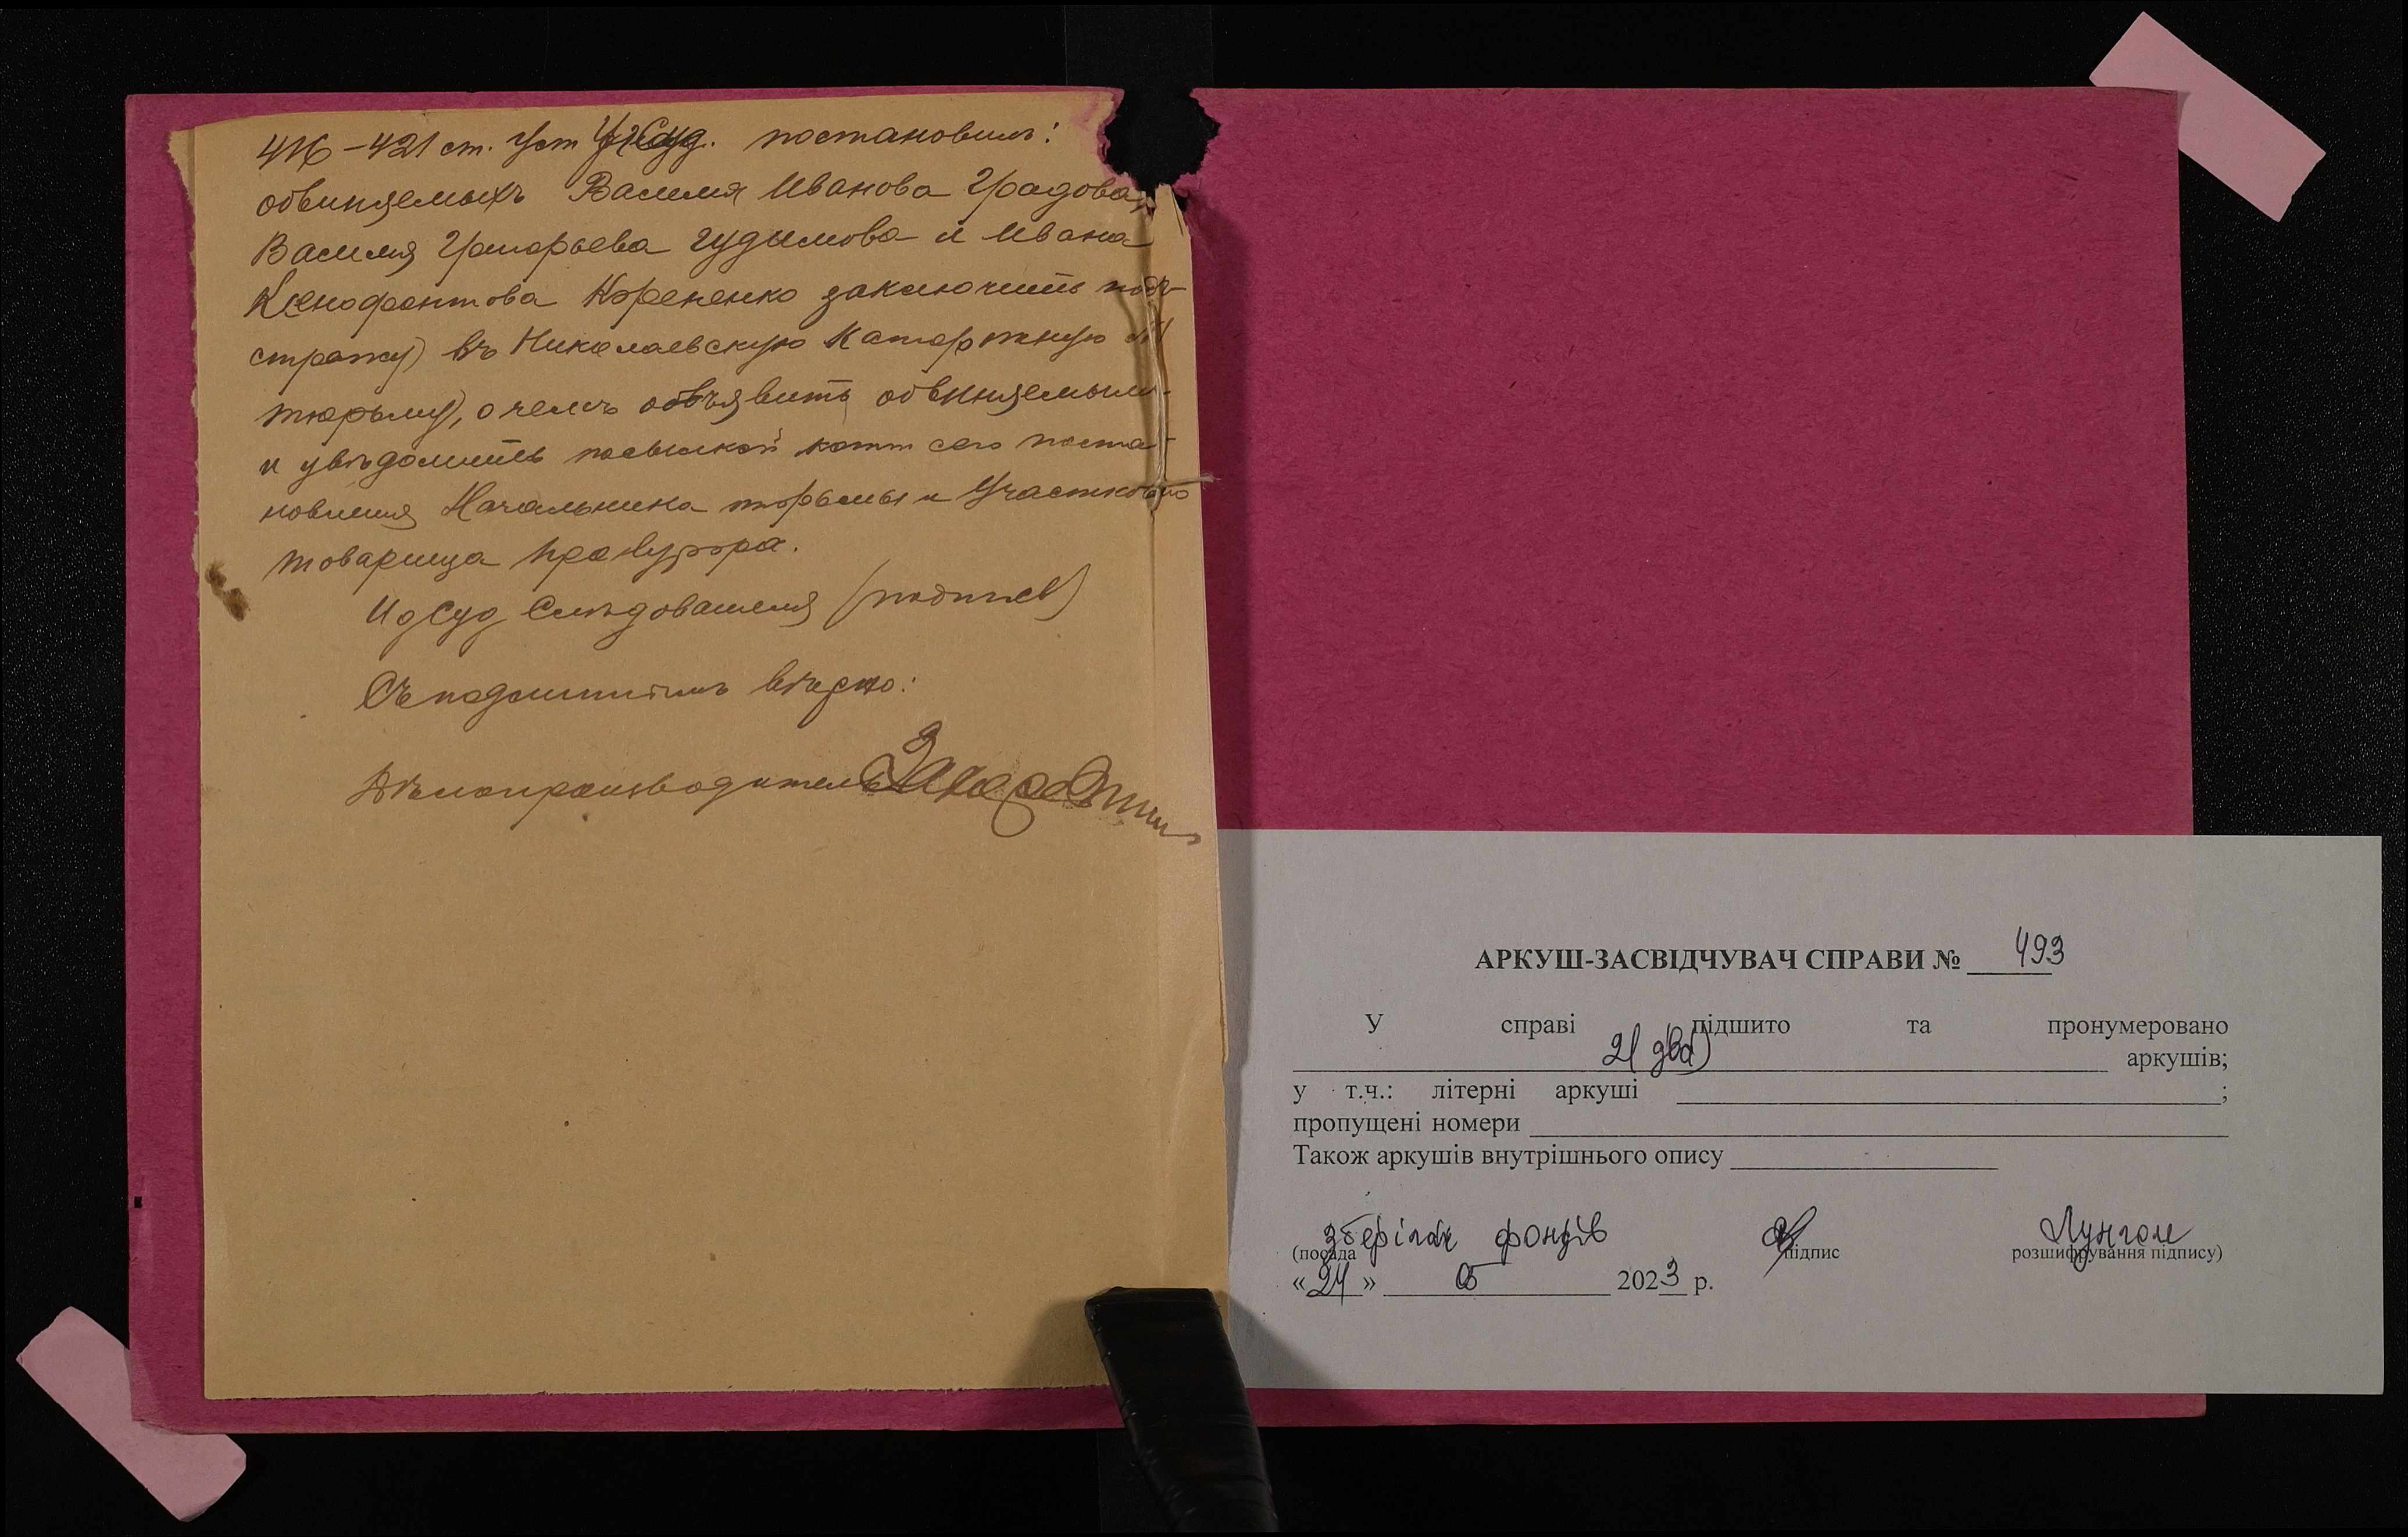 416–421 ст. Уст Уг Суд. постановилъ:
обвиняемыхъ Василия Иванова Градова,
Василия Григорьева Гудимова и Ивана
Ксенофонтова Корененко заключить подъ
стражу въ Николаевскую Каторжную
тюрьму, о чемъ объявить обвиняемымъ
и увѣдомить посылкой копіи сего поста-
новления Начальника тюрьмы и Участковаго
товарища прокурора.
И д Суд Слѣдователя (подпись)
Съ подлиннымъ вѣрно:
Дѣлопроизводитель
АРКУШ-ЗАСВІДЧУВАЧ СПРАВИ № 493
У справі підшито та пронумеровано
2 (два) аркушів;
у т.ч.: літерні аркуші ;
пропущені номери
Також аркушів внутрішнього опису
зберігач фондів
(посада підпис розшифрування підпису)
«24» 05 2023 р.